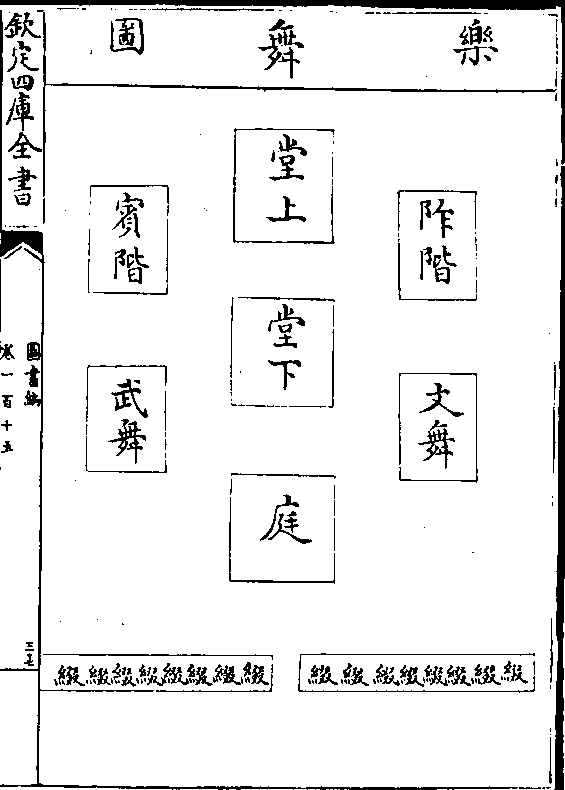 樂舞圖
堂上
阼階
賓階
堂下
文舞
武舞
庭
綴綴綴綴綴綴綴綴
綴綴綴綴綴綴綴綴
欽定四庫全書
圖書編
卷一百十五